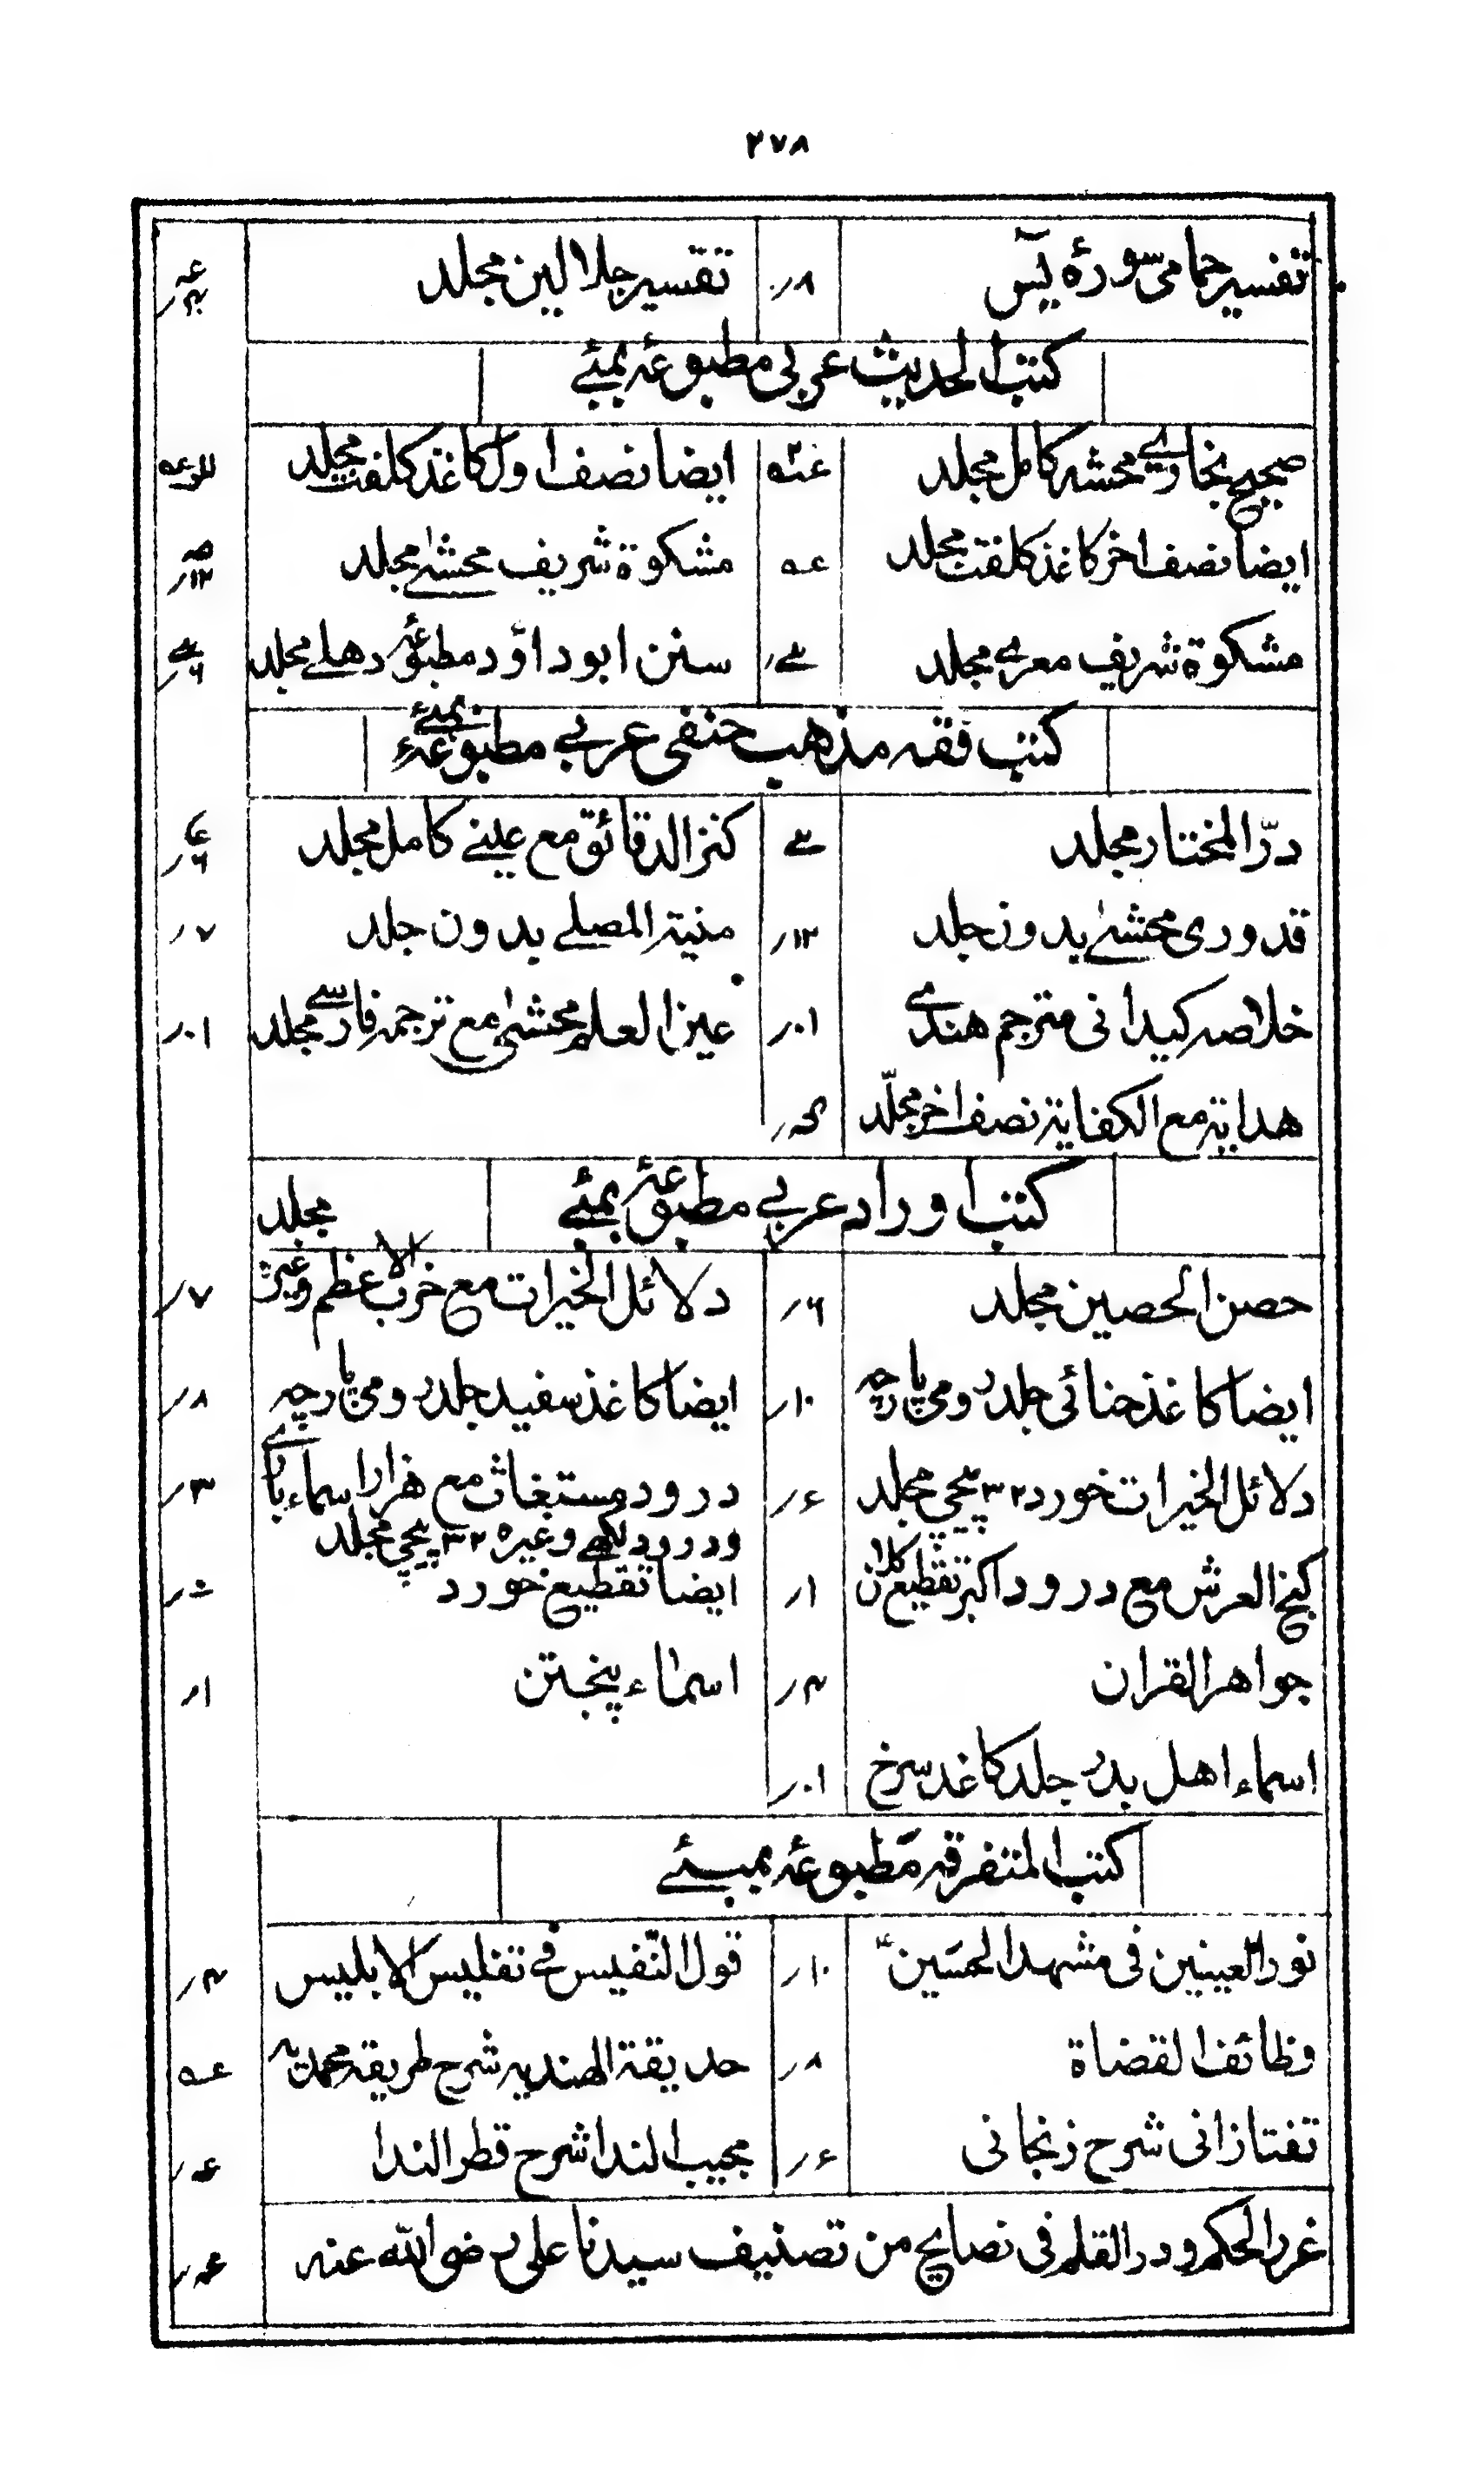 ۲۷۸
تفسیر حمامی سورۂ یٓس ۸؍ تفسیر جلالین مجلد
کتب الحدیث عربی مطبوعۂ بمبئے
صحیح بخاری محشہ کامل مجلد ایضا نصف اول کاغذ کلفت مجلد
ایضا نصف اخر کاغذ کلفت مجلد عہ مشکوۃ شریف محشےٰ مجلد ۱۲؍
مشکوۃ شریف معرے مجلد سنن ابوداؤد مطبوعۂ دھلے مجلد
کتب فقہ مذھب حنفی عربے مطبوعۂ بمبئے
درّ المختار مجلد کنز الدقائق مع عینے کامل مجلد
قدوری محشےٰ بدون جلد ۱۲؍ منیۃ المصلے بدون جلد ۷؍
خلاصہ کیدانی مترجم ھندے ۱۰؍ عین العلم محشیٰ مع ترجمہ فارسے مجلد ۱۰؍
ھدایۃ مع الکفایۃ نصف اخر مجلّد
کتب اوراد عربے مطبوعۂ بمبئے
حصن الحصین مجلد ۶؍ دلائل الخیرات مع حزب الاعظم وغیرہ مجلد ۷؍
ایضا کاغذ حنائی جلد رومی پارچہ ۱۰؍ ایضا کاغذ سفید جلد رومی پارچہ ۸؍
دلائل الخیرات خورد ۳۲ پیچی مجلد ۴؍ درود مستغاث مع ھزارا سماء باری ۳؍
ودرود لکھے وغیرہ ۳۲ پیچی مجلد
گنج العرش مع درود اکبر تقطیع کلان ۱؍ ایضا تقطیع خورد
جواھر القران ۴؍ اسماء پنجتن ۱؍
اسماء اھل بدر جلد کاغذ سرخ ۱۰؍
کتب المتفرقہ مطبوعۂ بمبئے
نور العینین فی مشہد الحسَین ۱۰؍ قول النّفیس فے تفلیس الابلیس ۴؍
وظائف القضاۃ ۸؍ حدیقۃ الھندیہ شرح طریقہ محمدیہ عہ
تفتازانی شرح زنجانی ۴؍ مجیب الندا شرح قطر الندا
غرر الحکم و درر القلم فی نصایح من تصنیف سیدنا علی رضی اللہ عنہ